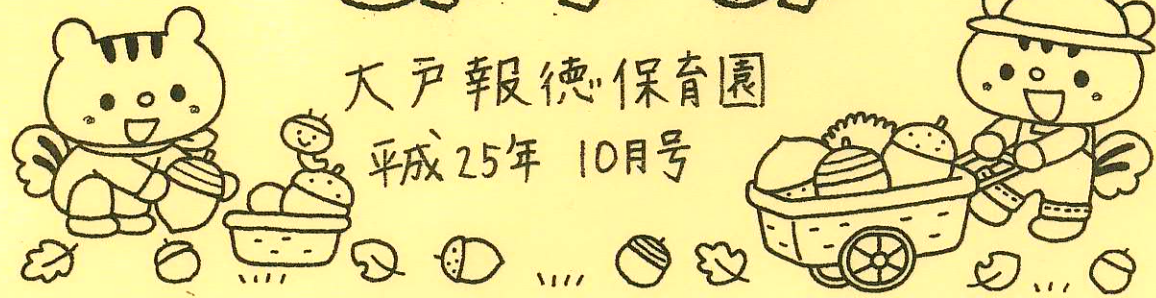 大戸報徳保育園
平成25年 10月号